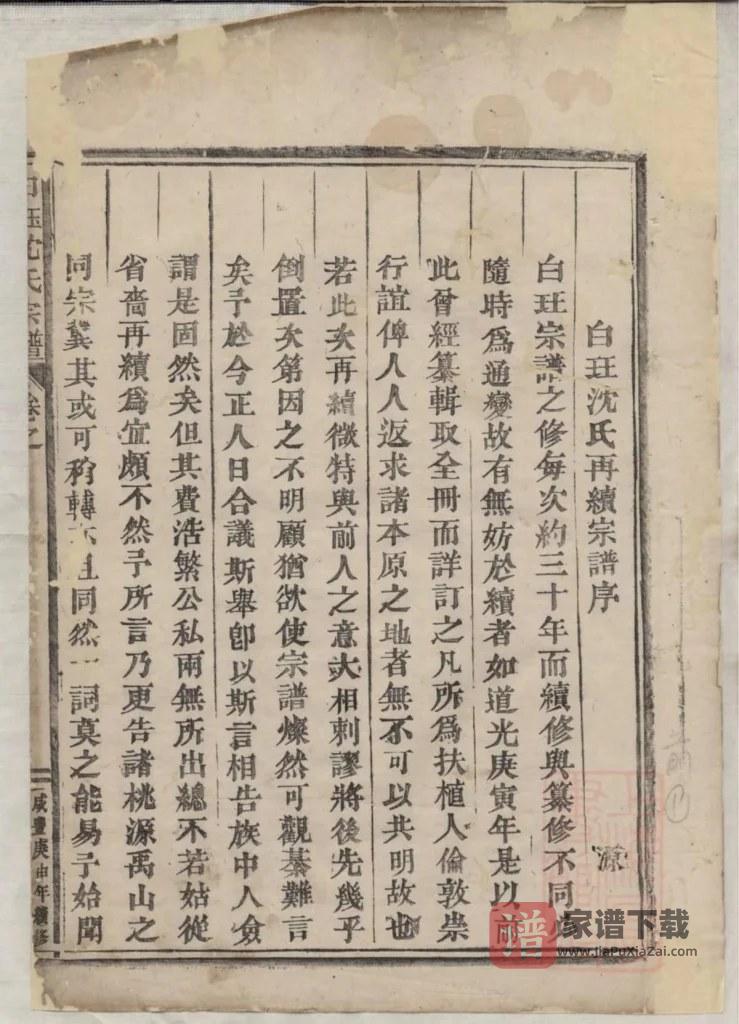 白玨沈氏再續宗譜序
源
白玨宗譜之修每次約三十年而續修與纂修不同
隨時爲通變故有無妨於續者如道光庚寅年是以前
此曾經纂輯取全冊而詳訂之凡所爲扶植人倫敦崇
行誼俾人人返求諸本原之地者無不可以共明故也
若此次再續微特與前人之意大相刺謬將後先幾乎
倒置次第因之不明顧猶欲使宗譜燦然可觀綦難言
矣予於今正人日合議斯舉卽以斯言相告族中人僉
謂是固然矣但其費浩繁公私兩無所出總不若姑從
省嗇再續爲宜頗不然予所言乃更告諸桃源禹山之
同宗冀其或可稍轉 且同然一詞莫之能易予始聞
白玨沈氏宗譜
卷之
咸豐庚申年續修
前①
譜
家谱下载
www.JiaPuXiaZai.com